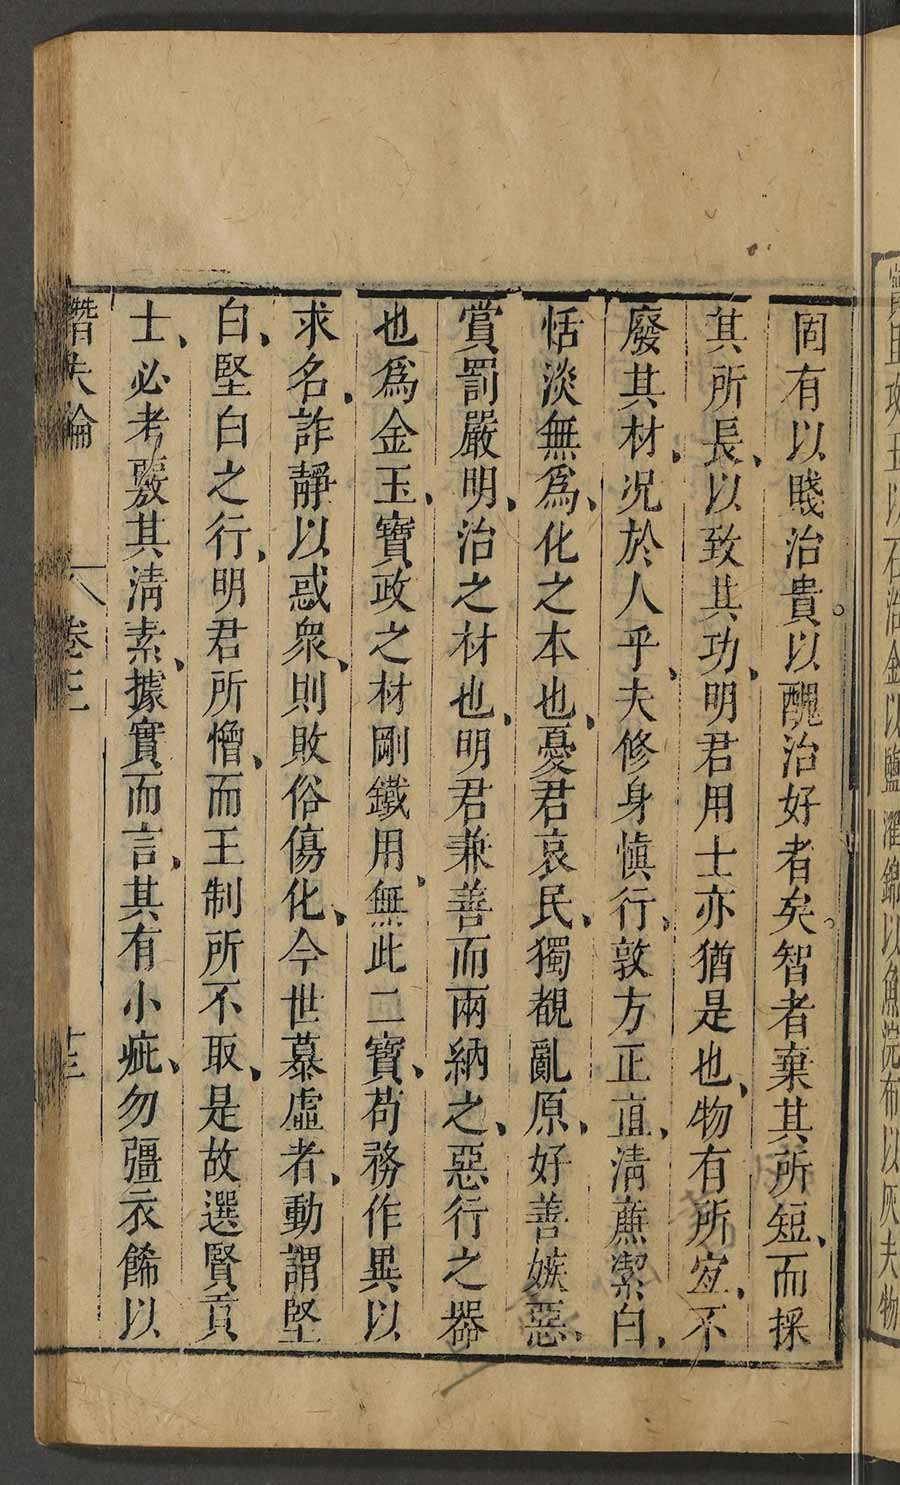 濯錦以魚浣布以灰夫物
固有以賤治貴以醜治好者矣智者棄其所短而採
其所長以致其功明君用士亦猶是也物有所宜不
廢其材况於人乎夫修身慎行敦方正直清廉潔白
恬淡無爲化之本也憂君哀民獨覩亂原好善嫉惡
賞罰嚴明治之材也明君兼善而兩納之惡行之器
也爲金玉寶政之材剛鐵用無此二寶苟務作異以
求名詐靜以惑衆則敗俗傷化今世慕虛者動謂堅
白堅白之行明君所憎而王制所不取是故選賢貢
士必考覈其淸素據實而言其有小疵勿彊衣餙以
潛夫論 卷三 十三